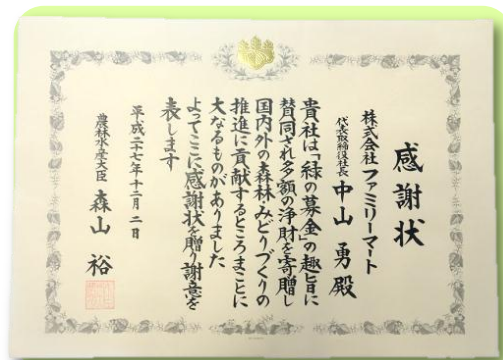 感謝状
株式会社ファミリーマート
代表取締役社長 中山 勇 殿
貴社は「緑の募金」の趣旨に
賛同され多額の浄財を寄贈し
国内外の森林・みどりづくりの
推進に貢献するところまことに
大なるものがありました
よってここに感謝状を贈り謝意を
表します
平成二十七年十二月二日
農林水産大臣 森山 裕